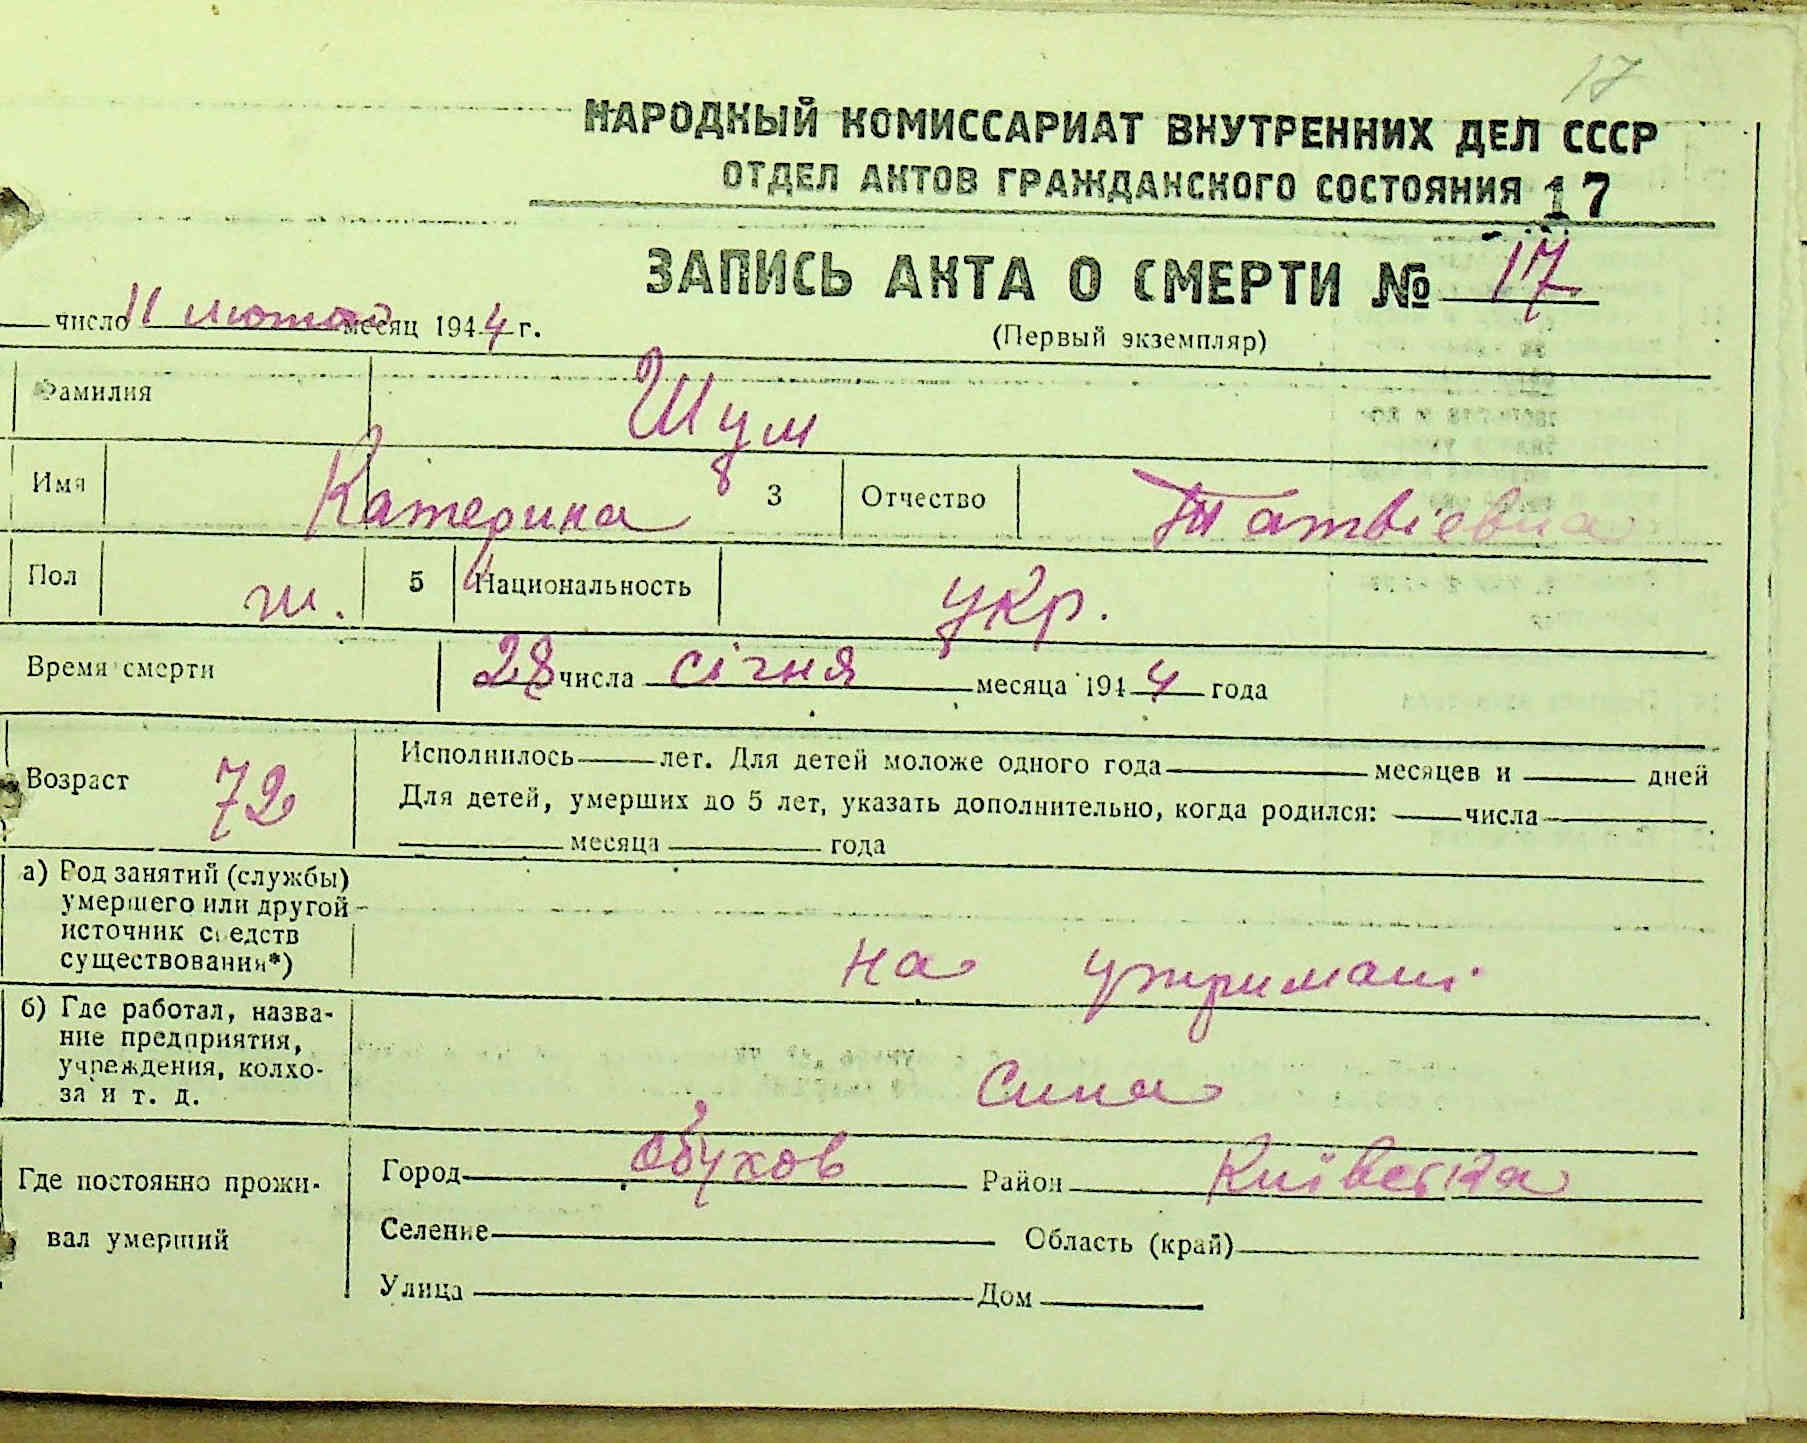 17
НАРОДНЫЙ КОМИССАРИАТ ВНУТРЕННИХ ДЕЛ СССР
ОТДЕЛ АКТОВ ГРАЖДАНСКОГО СОСТОЯНИЯ 17
ЗАПИСЬ АКТА О СМЕРТИ № 17
число 11 лютого месяц 1944 г.
(Первый экземпляр)
Фамилия Шум
Имя Катерина 3 Отчество Матвіевна
Пол ж. 5 Национальность укр.
Время смерти 28 числа січня месяца 1944 года
Возраст 72 Исполнилось лет. Для детей моложе одного года месяцев и дней
Для детей, умерших до 5 лет, указать дополнительно, когда родился: числа
месяца года
а) Род занятий (службы)
умершего или другой
источник средств
существования*) на утримані
б) Где работал, назва-
ние предприятия,
учреждения, колхо-
за и т. д. сина
Где постоянно прожи-
вал умерший
Город Обухов Район Київська
Селение Область (край)
Улица Дом